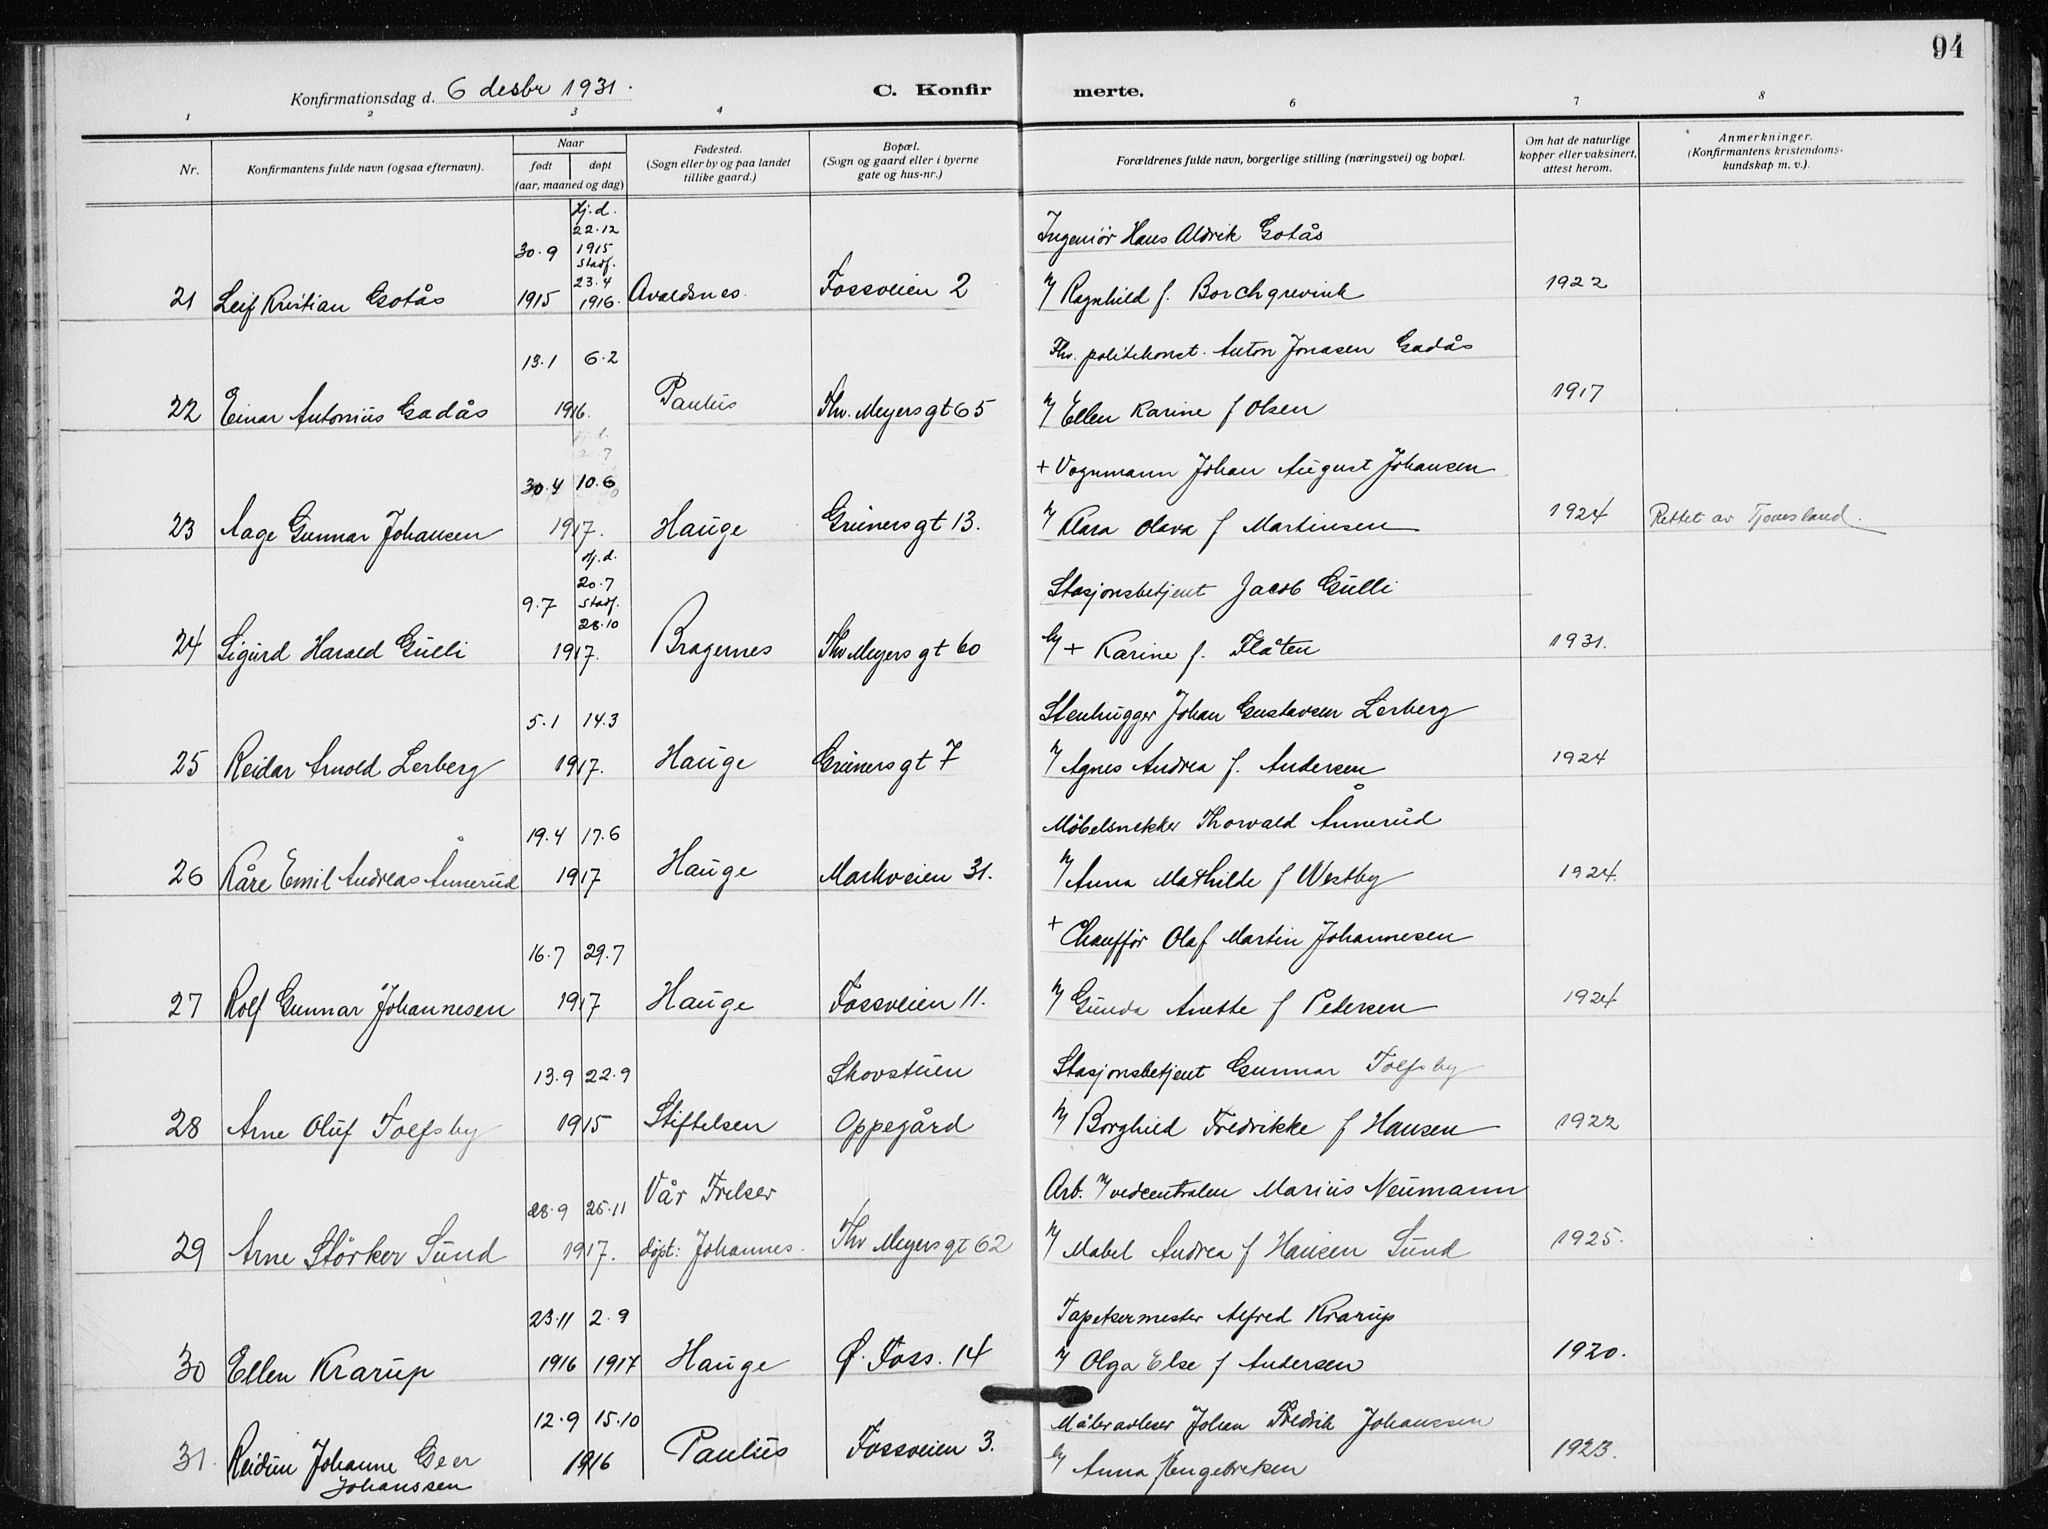 94
Konfirmationsdag d. 6 desbr 1931.
C. Konfirmerte.
1 2 3 4 6 7 8
Nr.
Konfirmantens fulde navn (ogsaa efternavn).
Naar
født døpt
(aar, maaned og dag)
Fødested.
(Sogn eller by og paa landet
tillike gaard.)
Bopæl.
(Sogn og gaard eller i byerne
gate og hus-nr.)
Forældrenes fulde navn, borgerlige stilling (næringsvei) og bopæl.
Om hat de naturlige
kopper eller vaksinert,
attest herom.
Anmerkninger.
(Konfirmantens kristendoms-
kundskap m. v.).
Hj.d.
22.12
30.9 1915 Ingeniør Hans Aldrik Gotås
Stadf.
23.4
21 Leif Kristian Gotås 1915 1916. Avaldsnes. Fossveien 2 Ragnhild f. Borchgrevink 1922
13.1 6.2 Fhv. politikonst. Anton Jonasen Gadås
22 Einar Antonius Gadås 1916. Paulus Thv. Meyersgt 65 Ellen Karine f Olsen 1917
30.4 10.6 + Vognmann Johan August Johansen
23 Aage Gunnar Johansen 1917. Hauge Grünersgt 13. Klara Olava f Martinsen 1924 Rettet av Tjomsland.
Hj.d.
20.7 Stasjonsbetjent Jacob Gulli
9.7 Stadf.
28.10
24 Sigurd Harald Gulli 1917. Bragernes Thv Meyersgt 60 + Karine f. Flåten 1931.
5.1 14.3 Stenhugger Johan Gustavsen Lerberg
25 Reidar Arnold Lerberg 1917. Hauge Grünersgt 7 Agnes Andrea f. Andersen 1924
19.4 17.6 Møbelsnekker Thorvald Ånnerud
26 Kåre Emil Andreas Ånnerud 1917 Hauge Markveien 31. Anna Mathilde f Westby 1924.
16.7 29.7 + Chauffør Olaf Martin Johannesen
27 Rolf Gunnar Johannesen 1917 Hauge Fossveien 11. Gunda Anette f Pedersen 1924
13.9 22.9 Skovstuen Stasjonsbetjent Gunnar Tolfsby
28 Arne Oluf Tolfsby 1915 Stiftelsen Oppegård Borghild Fredrikke f Hansen 1922
28.9 25.11 Vår Frelser Arb. vedcentralen Marius Neumann
29 Arne Störker Sund 1917. døpt: Johannes. Thv Meyersgt 62 Mabel Andrea f Hansen Sund 1925.
23.11 2.9 Tapetsermester Alfred Krarup
30 Ellen Krarup 1916 1917 Hauge Ø. Foss. 14 Olga Else f Andersen 1920.
12.9 15.10 Måleravleser Johan Fredrik Johanssen
31. Reidun Johanne Geer 1916 Paulus Fossveien 3. Anna f Engebretsen 1923.
Johanssen